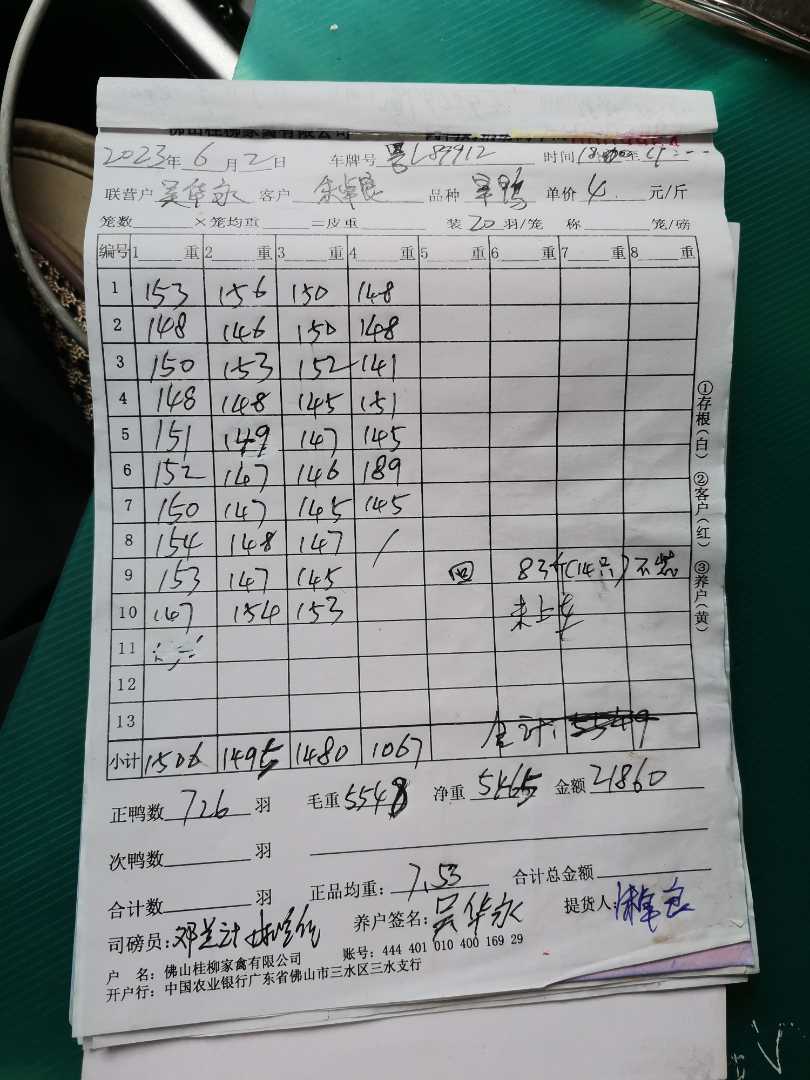 佛山桂柳家禽有限公司
2023年6月2日 车牌号 粤L89912 时间
联营户 吴华永 客户 余卓良 品种 旱鸭 单价 4 元/斤
笼数 ×笼均重 =皮重 装20羽/笼 称 笼/磅
编号 1 重 2 重 3 重 4 重 5 重 6 重 7 重 8 重
1 153 156 150 148
2 148 146 150 148
3 150 153 152 141
4 148 148 145 151
5 151 149 147 145
6 152 147 146 189
7 150 147 145 145
8 154 148 147 /
9 153 147 145 回 83斤(14只)不装
10 147 154 153 未上车
11
12
13
小计 1506 1495 1480 1067 合计: 5549
正鸭数 726 羽 毛重 5548 净重 5465 金额 21860
次鸭数 羽
合计数 羽 正品均重: 7.53 合计总金额
司磅员: 养户签名: 吴华永 提货人:
户 名: 佛山桂柳家禽有限公司 账号: 444 401 010 400 169 29
开户行: 中国农业银行广东省佛山市三水区三水支行
①存根(白) ②客户(红) ③养户(黄)